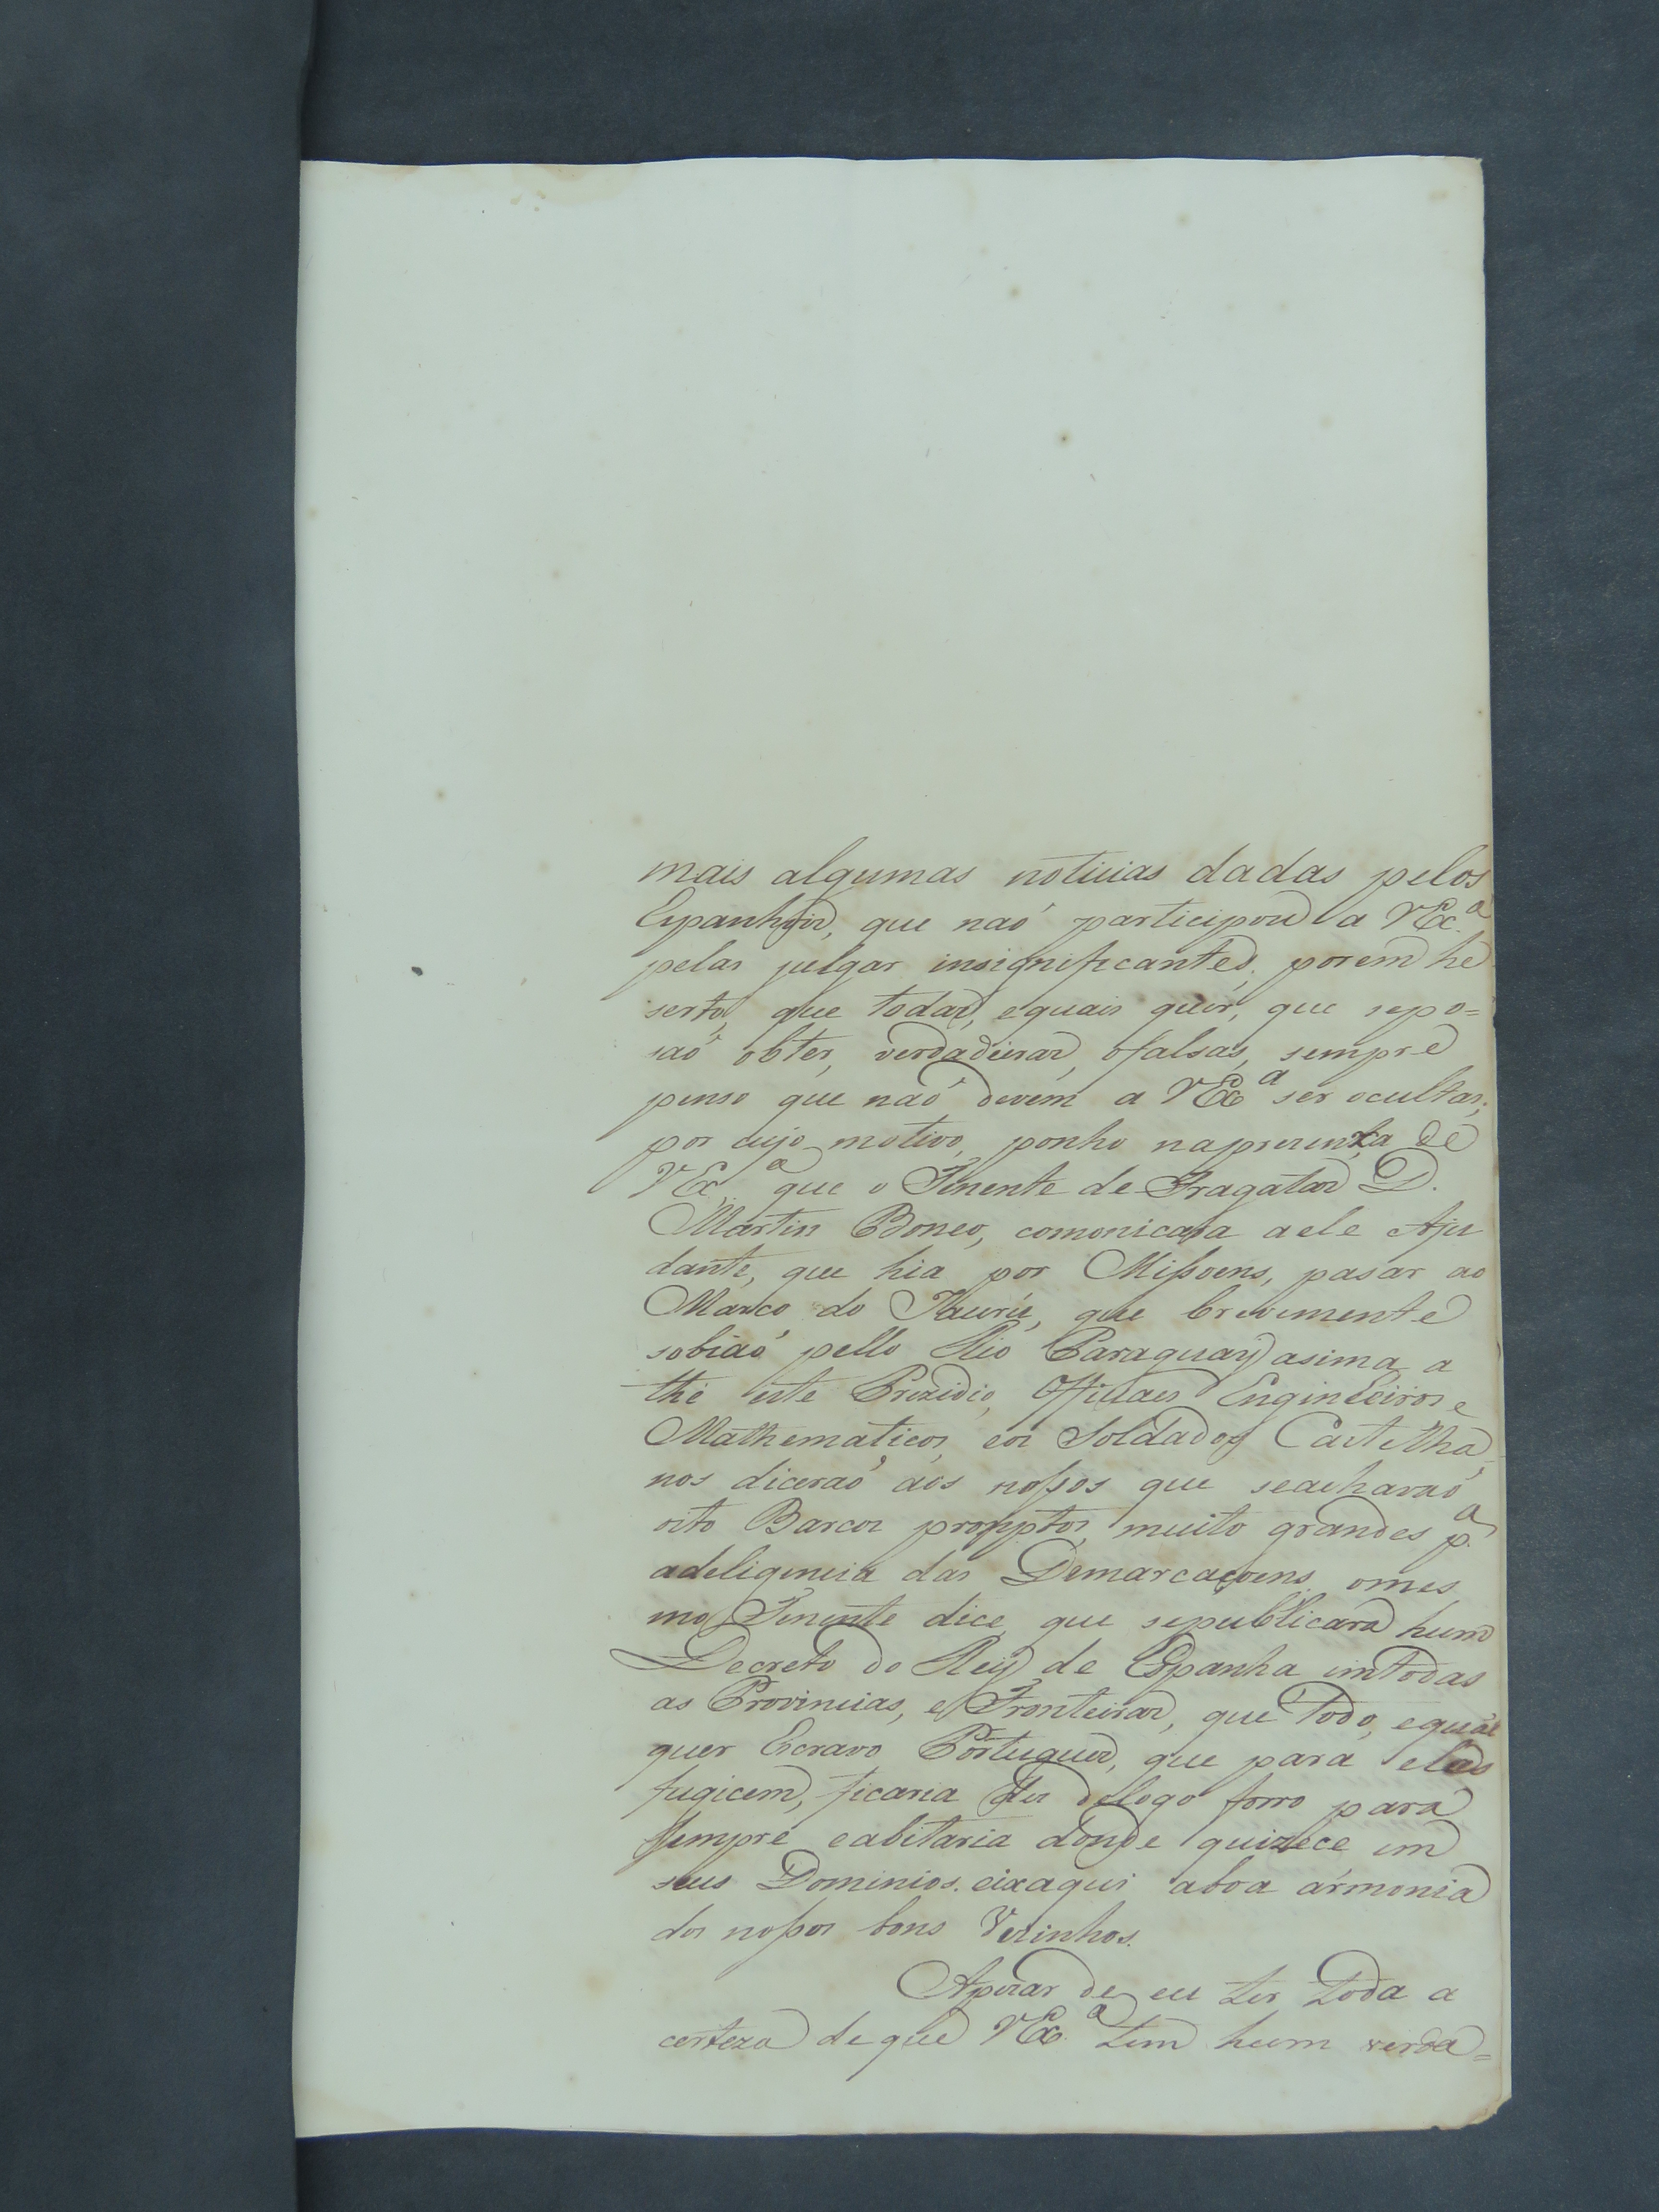 mais algumas noticias dadas pelos
Espanhois, que naó participou a VEx.ª
pelas julgar insignificantes, porem he
serto, que todas, equais quér, que sepo=
saó obter, verdadeiras, ofalsas, sempre
penso que naó devem a VExª ser ocultas;
por cujo motivo, ponho naprezenza de
VExª que o Tenente de Fragatas D.
Martin Boneo, comonicara aele Aju
dante, que hia por Mißoens, pasar ao
Marco do Jaurú, que brevemente
sobiaó pello Rio Paraguay asima a
thé este Prezidio, Officiaes Engineiros e
Mathematicos, eos Soldados Castelha
nos diceraó aos noßos que seacharaó
oito Barcos promptos, muito grandes p.ª
adeligencia das Demarcaçoens, omes
mo Tenente dice, que sepublicara hum
Decreto do Rey de Espanha imtodas
as Provincias, e Fronteiras, que Todo, equal
quer Escravo Portugues, que para elas
fugicem, ficaria des delogo forro para
sempre eabitaria donde quizece em
seus Dominios. eixaqui aboa ármonia
dos noßos bons Vezinhos.
Apezar de eu ter toda a
certeza deque VEx.ª tem hum verda=